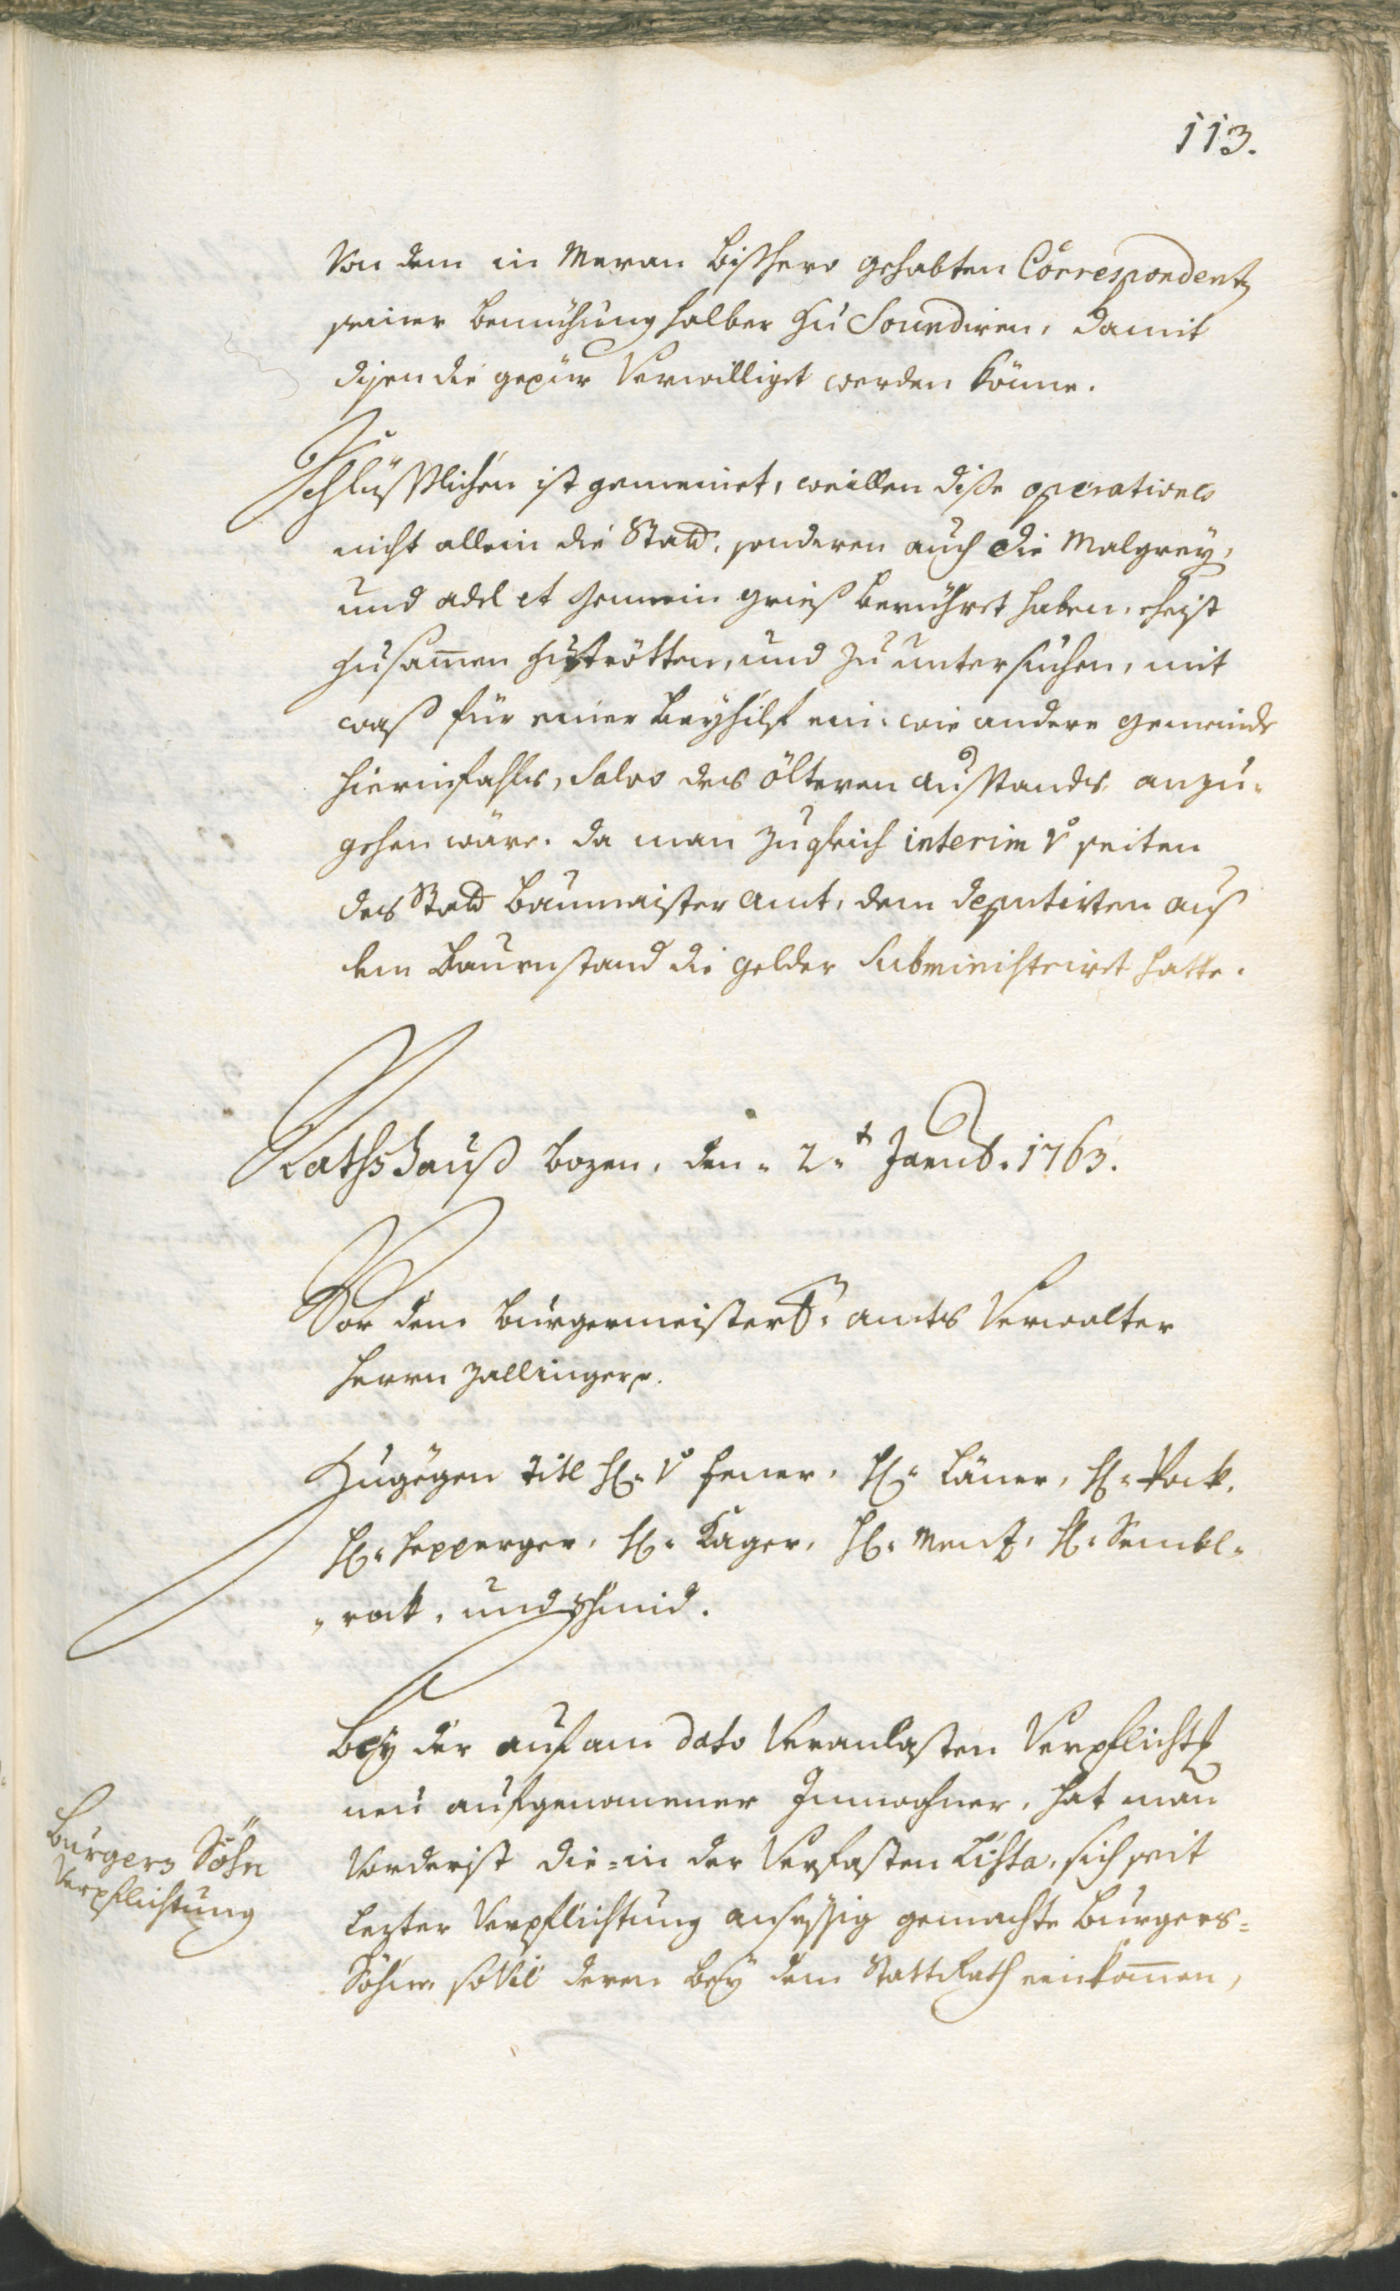 113.
Von dem in Meran bißhero gehabten Correspondentz
seiner bemühung halber zu Soundiren, damit
disen die gepür Verwilliget werden könne.
Schlüsslichen ist gemeinet, weillen dise operationes
nicht allein die Statt, sonderen auch die Malgrey,
und adel et Gemein grieß berühret haben, ehist
zusamen zutrötten, und zu untersuchen, mit
waß für einer beyhilf ein: wie andere gemeinde
hierinfahls, Salvo des ölteren ausstandes, anzu=
gehen wäre. da man zugleich interim v. seiten
des Statt Baumaister Amt, dem deputirten aus
dem Baurnstand die gelder Subministriret hatte.
Rathshauß bozen, den 2.t Janu. 1763.
Vor dem burgermeister amts Verwalter
Herrn Zallinger p.
Zugögen Titl H. v. Hener, H. Läner, H. Pock,
H. Hepperger, H. Kager, H. Menz, H. Sembl=
=rock, und Schmid.
Bey der auf am dato Veranlasten Verpflicht
neu aufgenomener Innwohner, hat man
Vorderist die=in der Verfasten Lista, sich seit
lezter Verpflichtung ansessig gemachte Burgers=
Söhne, sovil deren bey dem StattRath einkomen,
Burgers Söhn
Verpflichtung